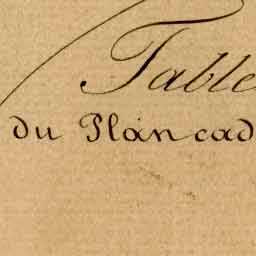 Table
du Plan cad